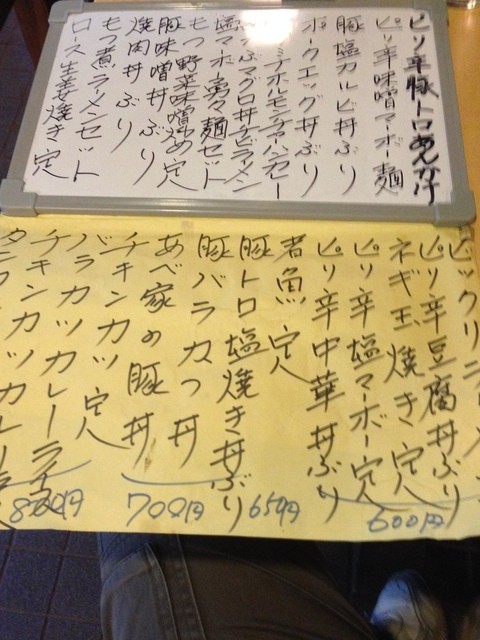 ピリ辛豚トロあんかけ
ピリ辛味噌マーボー麺
豚塩カルビ丼ぶり
ポークエッグ丼ぶり
ミナホルモンチャハンセー
ぶマグロ丼チビラーメン
塩マーボー麺セット
もつ野菜味噌炒め定
豚味噌丼ぶり
焼肉丼ぶり
もつ煮ラーメンセット
ロース生姜焼き定
ビックリ
ピリ辛豆腐丼ぶり
ネギ玉焼き定
ピリ辛塩マーボー定
ピリ辛中華丼ぶり
煮魚定
豚トロ塩焼き丼ぶり
豚バラカつ丼
あべ家の豚丼
チキンカツ定
バラカツカレーライス
チキンカツカレー
600円
650円
700円